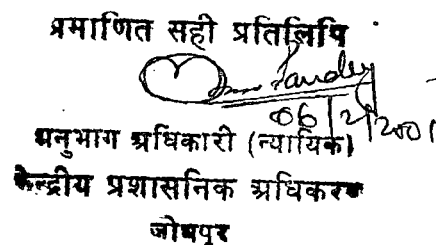 प्रमाणित सही प्रतिलिपि
Pandey
06/2/2001
अनुभाग अधिकारी (न्यायिक)
केन्द्रीय प्रशासनिक अधिकरण
जोधपुर